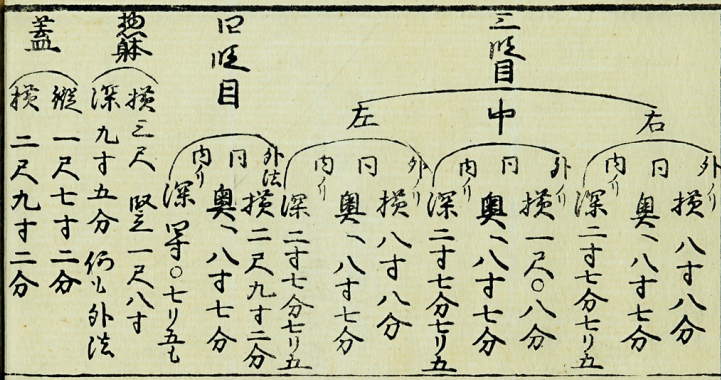 三段目
右
外ノリ 横 八寸八分
同 奥、八寸七分
内ノリ 深 二寸七分七リ五
中
外ノリ 横 一尺〇八分
同 奥、八寸七分
内ノリ 深 二寸七分七リ五
左
外ノリ 横 八寸八分
同 奥、八寸七分
内ノリ 深 二寸七分七リ五
四段目
外法 横 二尺九寸二分
同 奥、八寸七分
内ノリ 深 四寸〇七リ五毛
惣躰
横 三尺 竪 一尺八寸
深 九寸五分 何レも外法
蓋
縦 一尺七寸二分
横 二尺九寸二分